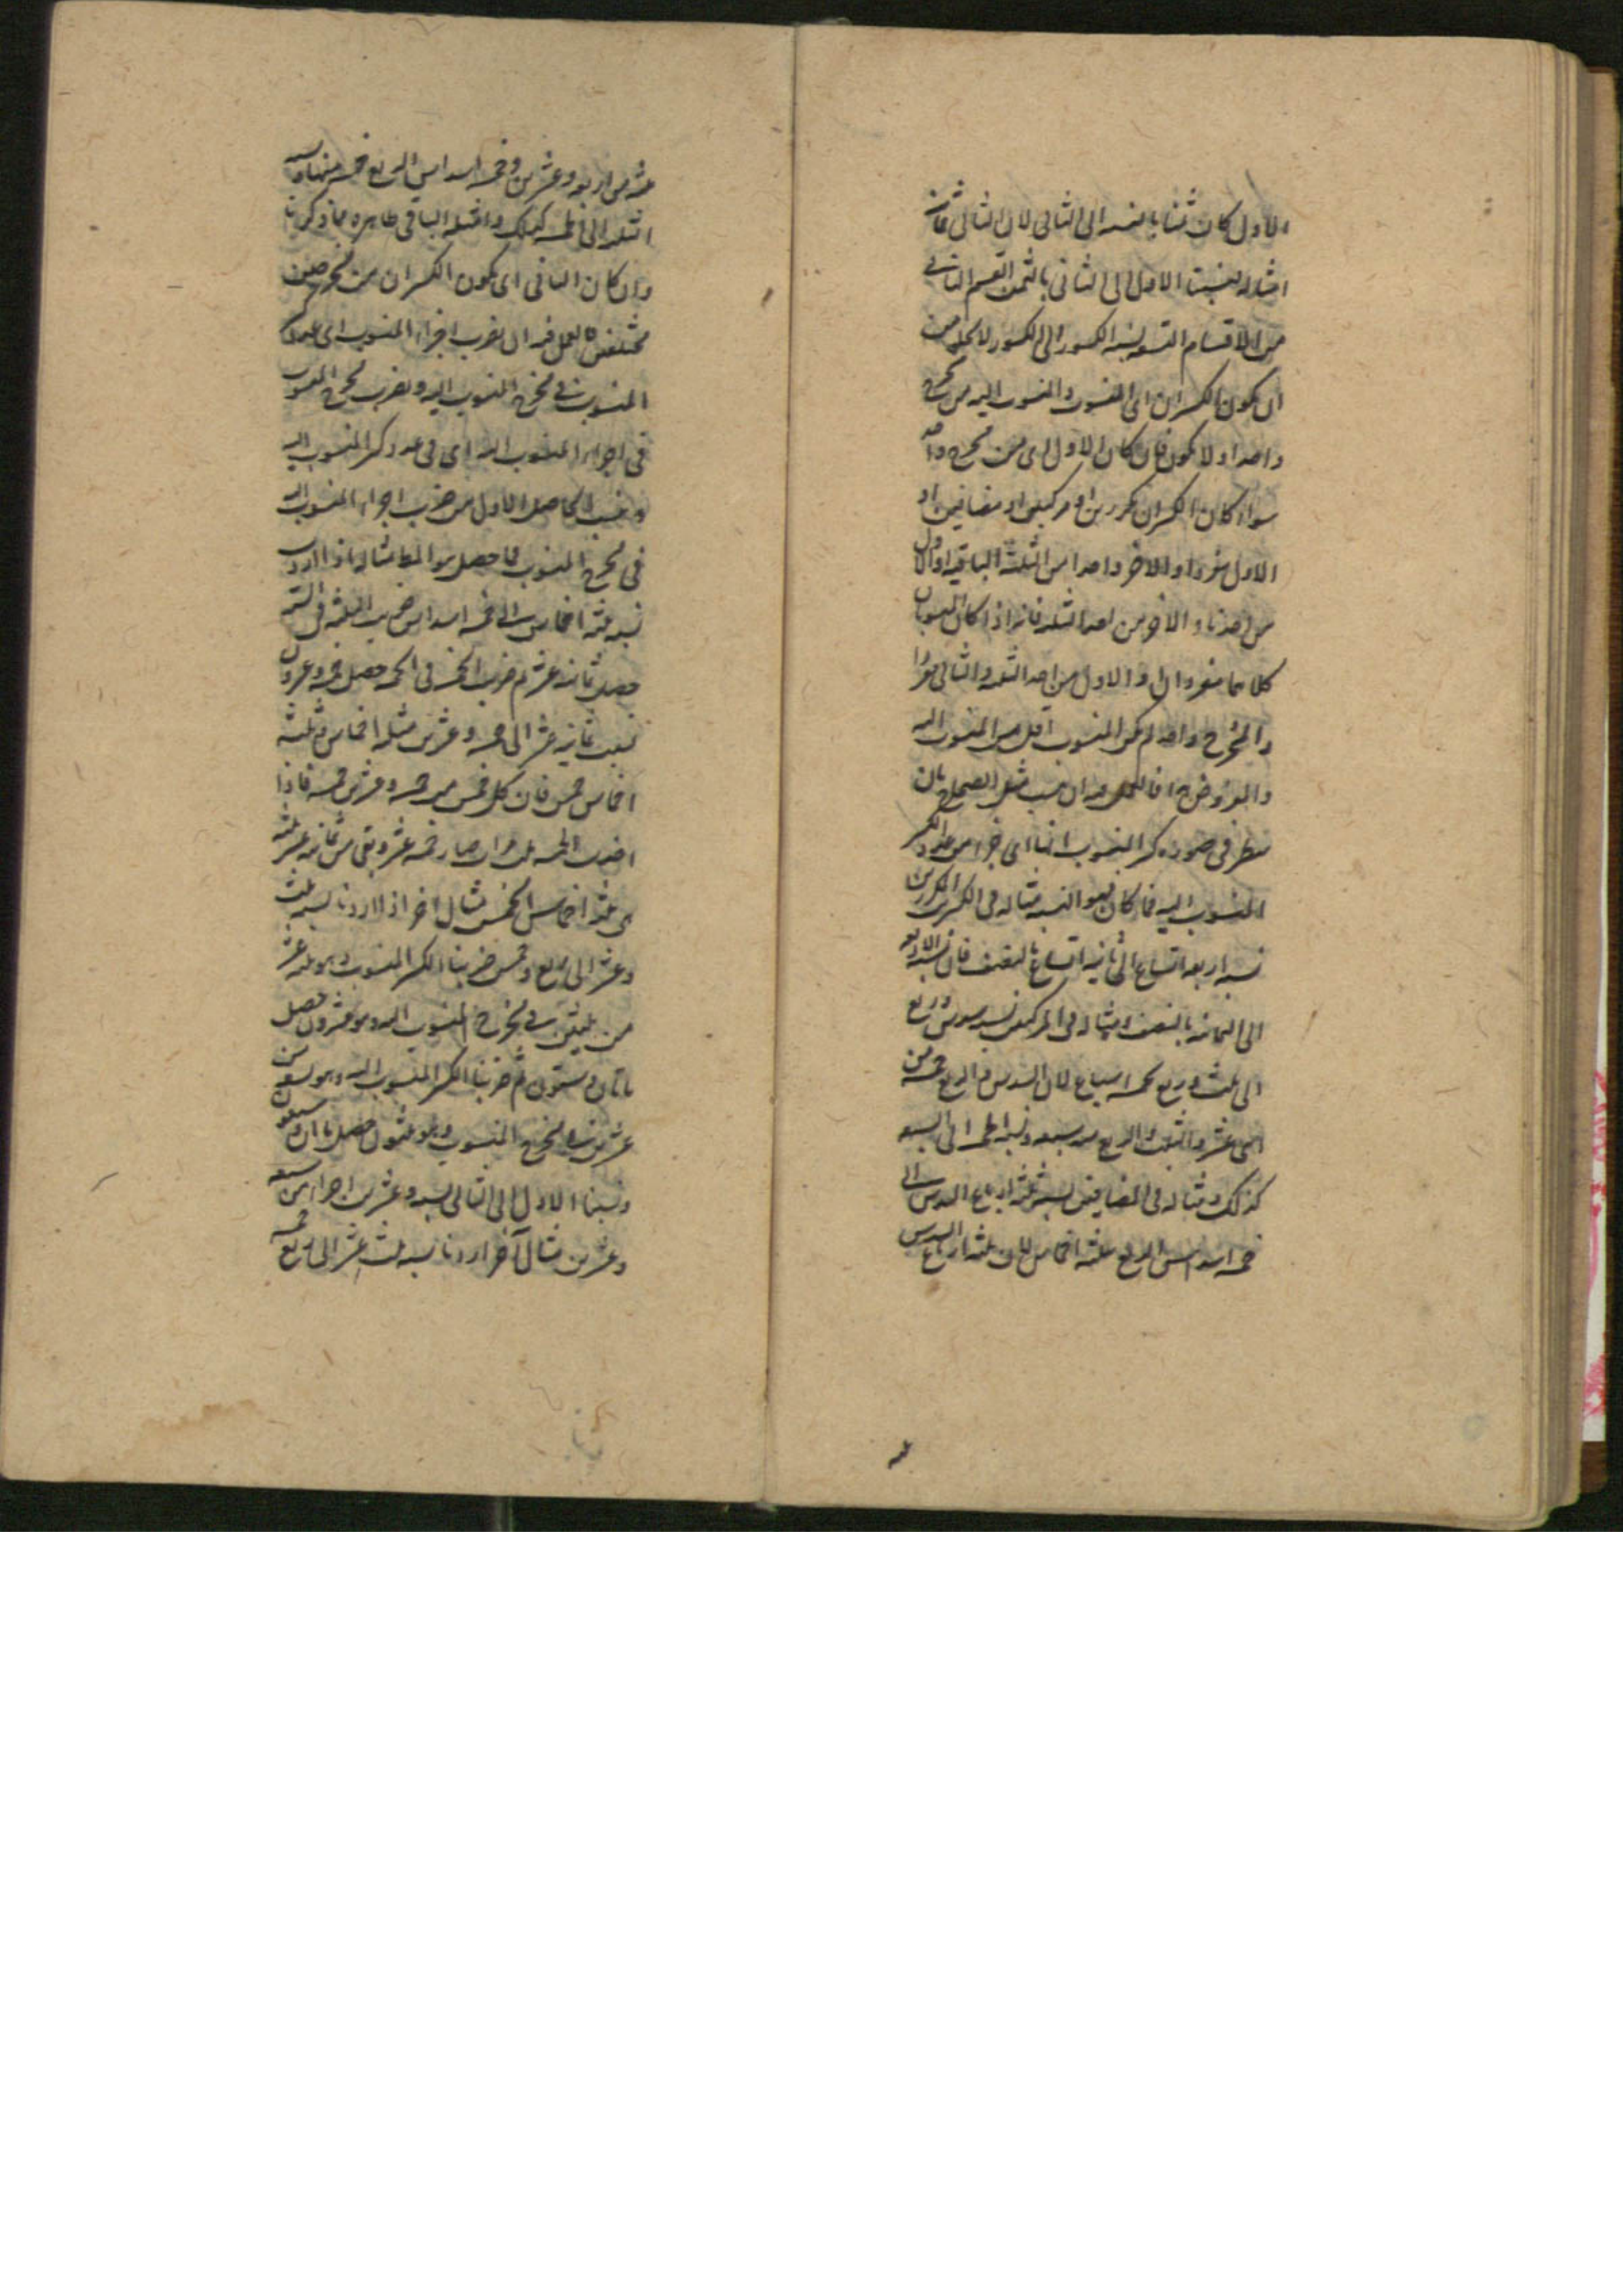 الاول كان ثمنا بالنسبة الى الثاني لان الثاني ثمانية
امثاله نسبنا الاول الى الثاني بالثمن القسم الثاني
من الاقسام التسعة نسبة الكسور الى الكسور لا يخلو من
ان يكون الكسران اى المنسوب والمنسوب اليه من مخرج
واحد او لا يكون فان كان الاول اى من مخرج واحد
سواء كان الكسران مكررين او مركبين او مضافين او
الاول مفردا والاخر واحدا من الثلثة الباقية او الاول
من احدها والاخر من احد الثلثة فانه اذا كان المنسوبان
كلاهما مفردان او الاول من احد الثلثة والثانى مفردا
والمخرج واحد لم يكن المنسوب اقل من المنسوب اليه
والمفروض فالعمل فيه ان ينسب مثل الصحاح بان
ينظر فى صورة كسر المنسوب انها اى جزء من عدد الكسر
المنسوب اليه فما كان فهو النسبة مثاله فى الكسرين المكررين
نسبة اربعة اتساع الى ثمانية اتساع بالنصف فان نسبة الاربعة
الى الثمانية بالنصف ومثاله فى المركبين نسبة سدس وربع
الى ثلث وربع خمسة اسباع لان السدس والربع خمسة من
اثنى عشر والثلث والربع منه سبعة ونسبة الخمسة الى السبعة
كذلك ومثاله فى المضافين نسبة ثلثة ارباع السدس الى
خمسة اسداس الربع ثلثة اخماس لان ثلثة ارباع السدس
ثلثة من اربعة وعشرين وخمسة اسداس الربع خمسة منها ونسبة
الثلثة الى الخمسة كذلك وامثلة الباقى ظاهرة مما ذكرنا
وان كان الثانى اى يكون الكسران من مخرجين
مختلفين فالعمل فيه ان يضرب اجزاء المنسوب اى عدد كسر
المنسوب فى مخرج المنسوب اليه ويضرب مخرج المنسوب
فى اجزاء المنسوب اليه اى فى عدد كسر المنسوب اليه
وينسب الحاصل الاول من ضرب اجزاء المنسوب اليه
فى مخرج المنسوب فما حصل هو المط مثاله اذا اردت
نسبة ثلثة اخماس الى خمسة اسداس ضربت الثلثة فى الستة
حصل ثمانية عشر ثم ضربت الخمسة فى الخمسة حصل خمسة وعشرون
نسبت ثمانية عشر الى خمسة وعشرين ثلثة اخماس وثلثة
اخماس خمس فان كل خمس من خمسة وعشرين خمسة فاذا
اخذت الخمسة ثلث مرات صار خمسة عشر وبقى من ثمانية عشر ثلثة
هى ثلثة اخماس الخمس مثال اخر اذا اردنا نسبة ثلث
وعشر الى ربع وخمس ضربنا الكسر المنسوب وهو ثلثة عشر
من ثلثين فى مخرج المنسوب اليه وهو عشرون حصل
مائتان وستون ثم ضربنا الكسر المنسوب اليه وهو تسعة من
عشرين فى مخرج المنسوب وهو ثلثون حصل مائتان وسبعون
ونسبنا الاول الى الثانى بستة وعشرين اجزاء من سبعة
وعشرين مثال آخر اردنا نسبة ثلث عشر الى ربع خمسة